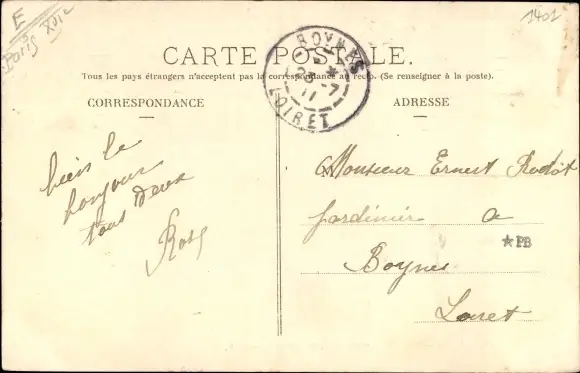 E
Paris XVIe
1401
CARTE POSTALE.
Tous les pays étrangers n'acceptent pas la correspondance au recto. (Se renseigner à la poste).
CORRESPONDANCE
ADRESSE
BOYNES
23 -7
11
LOIRET
bien le
bonjour
tous deux
Monsieur Ernest Rodot
jardinier a
★PB
Boynes
Loiret